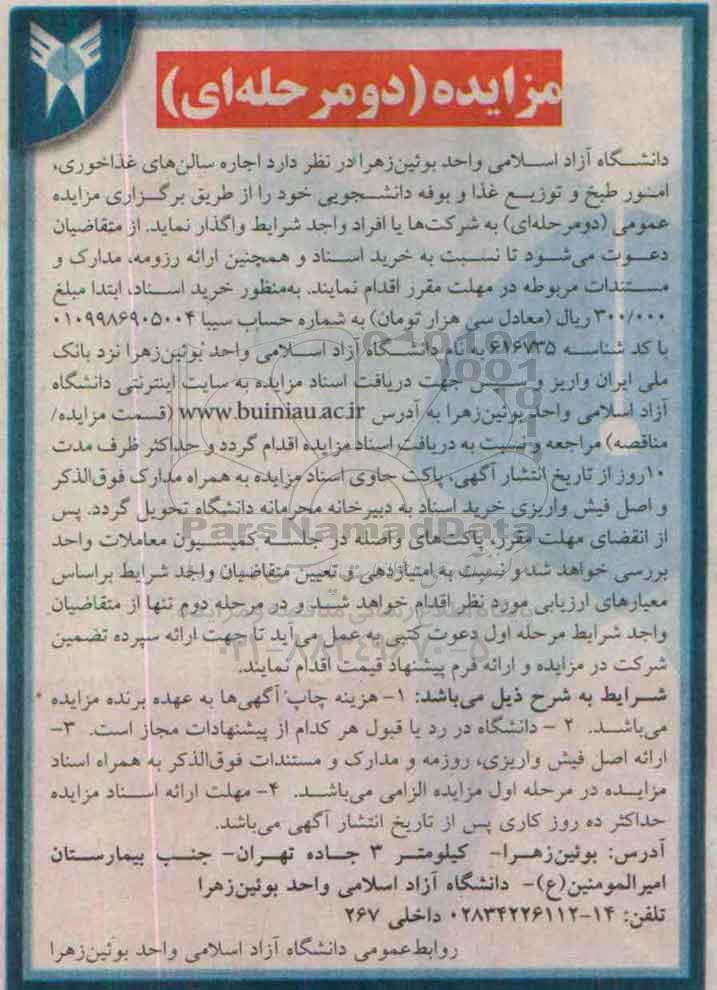 مزایده (دومرحله‌ای)
دانشگاه آزاد اسلامی واحد بوئین‌زهرا در نظر دارد اجاره سالن‌های غذاخوری،
امور طبخ و توزیع غذا و بوفه دانشجویی خود را از طریق برگزاری مزایده
عمومی (دومرحله‌ای) به شرکت‌ها یا افراد واجد شرایط واگذار نماید. از متقاضیان
دعوت می‌شود تا نسبت به خرید اسناد و همچنین ارائه رزومه، مدارک و
مستندات مربوطه در مهلت مقرر اقدام نمایند. به‌منظور خرید اسناد، ابتدا مبلغ
۳۰۰/۰۰۰ ریال (معادل سی هزار تومان) به شماره حساب سیبا ۰۱۰۹۹۸۶۹۰۵۰۰۴
با کد شناسه ۶۱۶۷۳۵ به نام دانشگاه آزاد اسلامی واحد بوئین‌زهرا نزد بانک
ملی ایران واریز و سپس جهت دریافت اسناد مزایده به سایت اینترنتی دانشگاه
آزاد اسلامی واحد بوئین‌زهرا به آدرس www.buiniau.ac.ir (قسمت مزایده/
مناقصه) مراجعه و نسبت به دریافت اسناد مزایده اقدام گردد و حداکثر ظرف مدت
۱۰روز از تاریخ انتشار آگهی، پاکت حاوی اسناد مزایده به همراه مدارک فوق‌الذکر
و اصل فیش واریزی خرید اسناد به دبیرخانه محرمانه دانشگاه تحویل گردد. پس
از انقضای مهلت مقرر، پاکت‌های واصله در جلسه کمیسیون معاملات واحد
بررسی خواهد شد و نسبت به امتیازدهی و تعیین متقاضیان واجد شرایط براساس
معیارهای ارزیابی مورد نظر اقدام خواهد شد و در مرحله دوم تنها از متقاضیان
واجد شرایط مرحله اول دعوت کتبی به عمل می‌آید تا جهت ارائه سپرده تضمین
شرکت در مزایده و ارائه فرم پیشنهاد قیمت اقدام نمایند.
شرایط به شرح ذیل می‌باشد: ۱- هزینه چاپ آگهی‌ها به عهده برنده مزایده
می‌باشد. ۲ - دانشگاه در رد یا قبول هر کدام از پیشنهادات مجاز است. ۳-
ارائه اصل فیش واریزی، روزمه و مدارک و مستندات فوق‌الذکر به همراه اسناد
مزایده در مرحله اول مزایده الزامی می‌باشد. ۴- مهلت ارائه اسناد مزایده
حداکثر ده روز کاری پس از تاریخ انتشار آگهی می‌باشد.
آدرس: بوئین‌زهرا- کیلومتر ۳ جاده تهران- جنب بیمارستان
امیرالمومنین(ع)- دانشگاه آزاد اسلامی واحد بوئین‌زهرا
تلفن: ۱۴-۰۲۸۳۴۲۲۶۱۱۲ داخلی ۲۶۷
روابط‌عمومی دانشگاه آزاد اسلامی واحد بوئین‌زهرا
ParsNamadData
۰۲۱-۸۸۳۴۹۶۷۰-۵